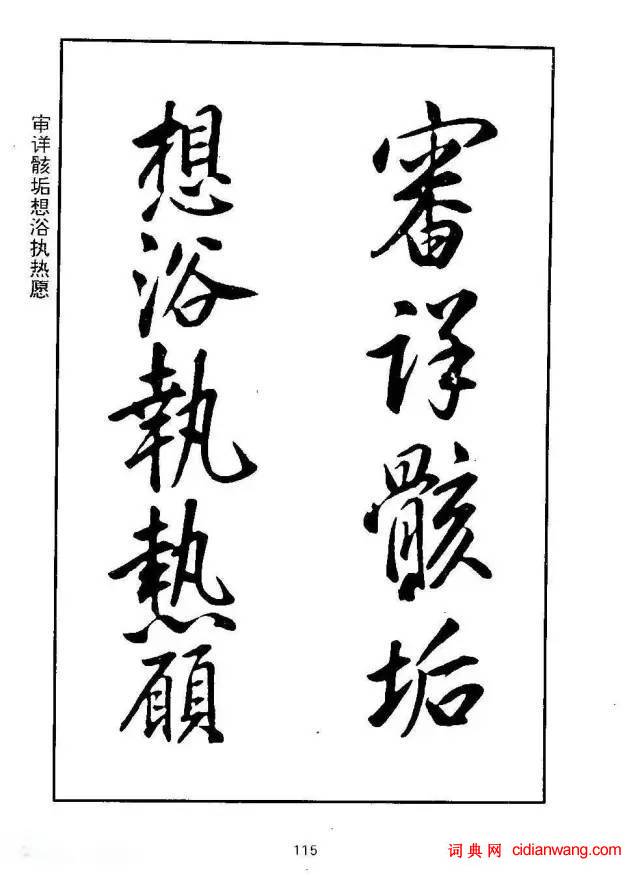 審詳骸垢
想浴執熱願
审详骸垢想浴执热愿
115
词典网 cidianwang.com